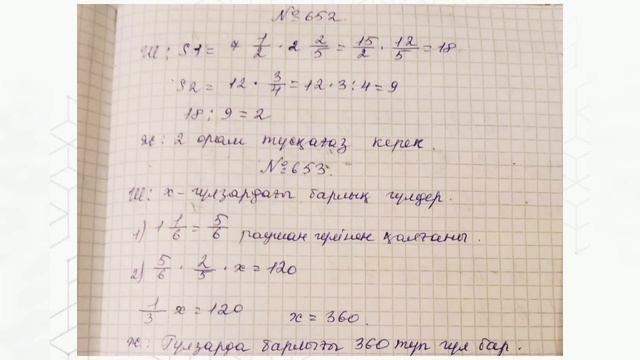 №652.
Ш: S1 = 7 1/2 · 2 2/5 = 15/2 · 12/5 = 18
S2 = 12 · 3/4 = 12 · 3 : 4 = 9
18 : 9 = 2
Ж: 2 орам тұсқағаз керек.
№653.
Ш: х – гүлзардағы барлық гүлдер.
1) 1 1/6 = 5/6 раушан гүлінен қалғаны.
2) 5/6 · 2/5 · х = 120
1/3 х = 120 х = 360.
Ж: Гүлзарда барлығы 360 түп гүл бар.